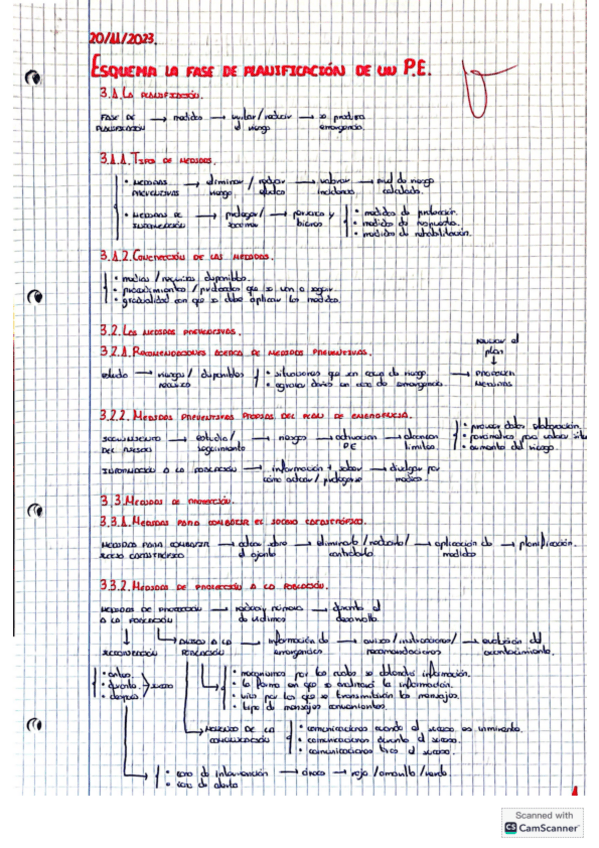 20/11/2023.
ESQUEMA LA FASE DE PLANIFICACIÓN DE UN P.E.
3.1. LA PLANIFICACIÓN.
FASE DE PLANIFICACIÓN → medidas → anular/reducir el riesgo → se produzca emergencia.
3.1.1. TIPOS DE MEDIDAS.
• MEDIDAS PREVENTIVAS → eliminar/reducir riesgo, efectos → valorar incidencias → nivel de riesgo calculado.
• MEDIDAS DE INTERVENCIÓN → proteger/socorrer → personas y bienes
• medidas de protección.
• medidas de respuesta.
• medidas de rehabilitación.
3.1.2. CONCRECCIÓN DE LAS MEDIDAS.
• medios/recursos disponibles.
• procedimientos/protocolos que se van a seguir
• gradualidad con que se debe aplicar las medidas.
3.2. LAS MEDIDAS PREVENTIVAS.
3.2.1. RECOMENDACIONES ACERCA DE MEDIDAS PREVENTIVAS.
estudio → riesgos/ disponibles
• situaciones que en caso de riesgo
en caso de emergencia
→ PROPONER MEDIDAS
el plan
3.2.2. MEDIDAS PREVENTIVAS PROPIAS DEL PLAN DE EMERGENCIA.
SEGUIMIENTO DEL RIESGO → estudio/seguimiento → riesgos → activación PE → alcanzan límites
• proveer datos elaboración.
• parámetros para valorar
• aumento del riesgo.
INFORMACIÓN A LA POBLACIÓN → información + saber cómo actuar/protegerse → divulgar por medios.
3.3. MEDIDAS DE PROTECCIÓN.
3.3.1. MEDIDAS PARA COMBATIR EL SUCESO CATASTRÓFICO.
MEDIDAS PARA COMBATIR SUCESO CATASTRÓFICO → actuar sobre el agente → eliminarlo/reducirlo/controlarlo → aplicación de medidas → planificación.
3.3.2. MEDIDAS DE PROTECCIÓN A LA POBLACIÓN.
MEDIDAS DE PROTECCIÓN A LA POBLACIÓN → reducir número de víctimas → durante el desarrollo
AVISOS A LA POBLACIÓN → información de emergencias → avisos/indicaciones/recomendaciones → evolución del acontecimiento.
• antes
• durante
• después
suceso
• mecanismos por los cuales se obtendrá información.
• la forma en que se evaluará la información.
• vías por las que se transmitirán los mensajes.
• tipo de mensajes convenientes.
MOMENTO DE LA COMUNICACIÓN
• comunicaciones cuando el suceso es inminente.
• comunicaciones durante el suceso.
• comunicaciones tras el suceso.
• zona de intervención → áreas → roja/amarilla/verde.
• zona de alerta
Scanned with
CS CamScanner